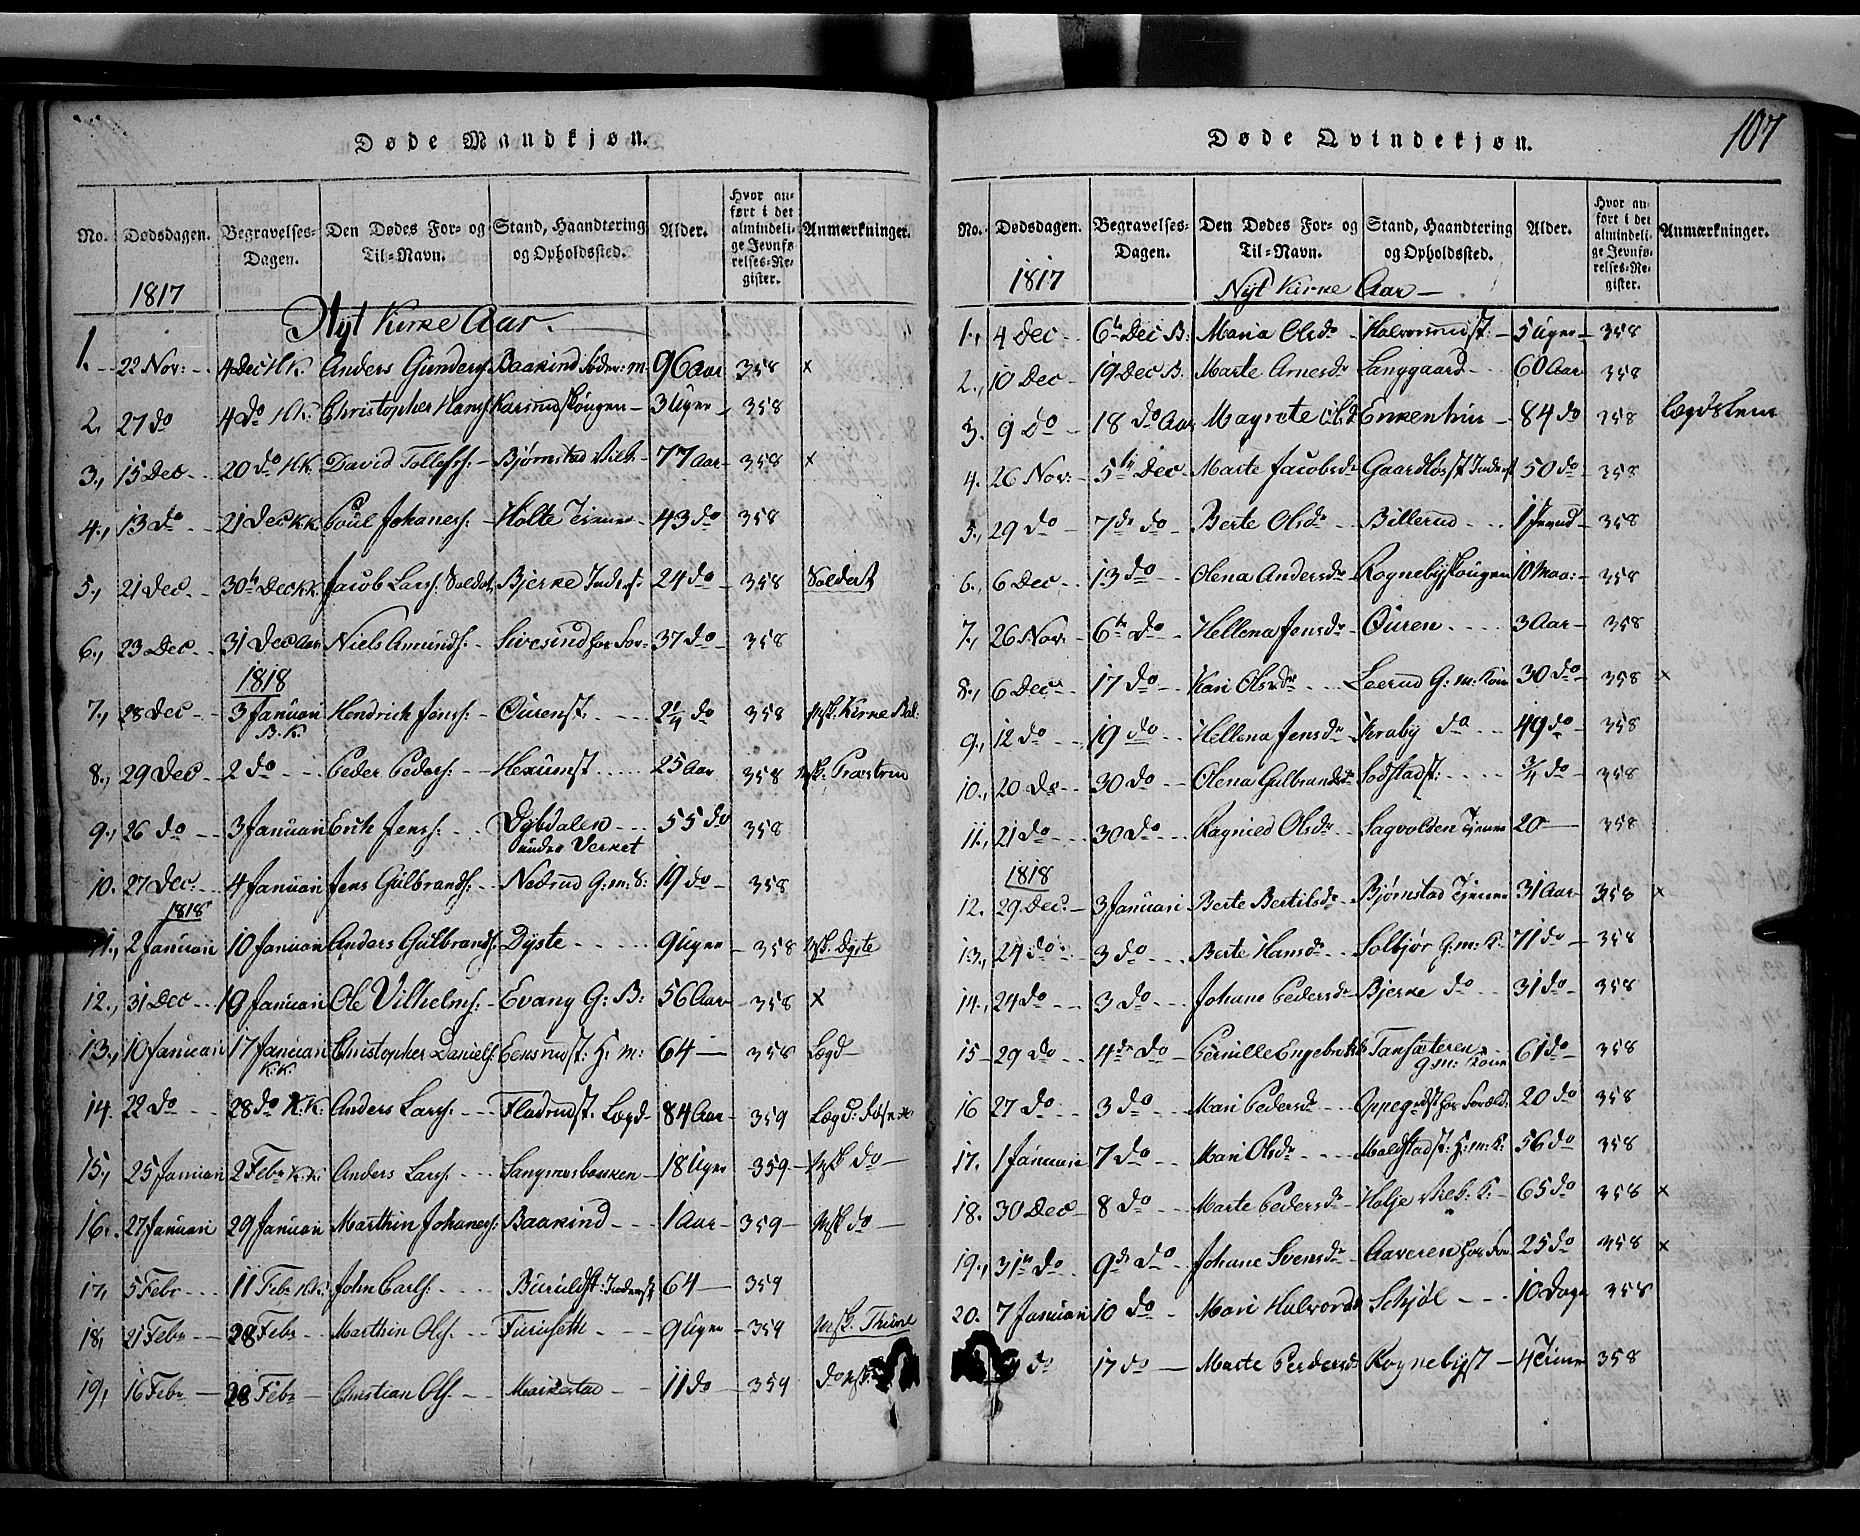 107
Døde Mandkjøn.
No. Dødsdagen. Begravelses-Dagen. Den Dødes For- og Til-Navn. Stand, Haandtering og Opholdssted. Alder. Hvor anført i det almindelige Jevnførelses-Register. Anmærkninger.
1817
Nyt Kirke Aar.
1. 22 Nov: 4 Dec H.K. Anders Gunders: Baakind Føder: m: 96 Aar 358 x
2. 27 do 4 do H.K. Christopher Hans: 3 Uger 358
3., 15 Dec 20 do H.K. David Tollefs: Bjørnstad 77 Aar 358 x
4., 13 do 21 Dec K.K. Poul Johaness: Holte 43 do 358
5., 21 Dec 30te Dec K.K. Jacob Larss: Soldat Bjerke Inders: 24 do 358 Soldat
6., 23 Dec 31 Dec Aas Niels Amunds: 37 do 358
1818
7., 28 Dec 3 Januari B.K. Hendrich Jenss: Ourenst. 2 1/4 do 358
8., 29 Dec 2 do Peder Peders: Hexumst 25 Aar 358
9., 26 do 3 Januari Erik Jenss: Dybdalen under Verket 55 do 358
10. 27 Dec. 4 Januari Jens Gulbrands: Nedrud G: m: S: 19 do 358
1818
11., 2 Januari 10 Januari Anders Gulbrands: Dyste 9 Uger 358 Dyste
12., 31 Dec 19 Januari Ole Vilhelms: Evang G: B: 56 Aar 358 x
13., 10 Januari 17 Januari K.K. Christopher Daniels: Eensrudst: H: m: 64 358 Lægd
14. 22 do 28 do K.K. Anders Larss: Fladrudst. Lægd 84 Aar 359 Lægd:
15, 25 Januari 2 Febr K.K. Anders Larss. Sangnæsbakken 18 Uger 359 do
16. 27 Januari 29 Januari Marthin Johaness: Baakind 1 Aar 359 do
17, 5 Febr 11 Febr K.K. John Carls: 64 359
18, 21 Febr 28 Febr Marthin Ols. Furuseth 9 Uger 359 Thune
19, 16 Febr 28 Febr Christian Ols. 11 do 359 do
Døde Qvindekjøn.
No. Dødsdagen. Begravelses-Dagen. Den Dødes For- og Til-Navn. Stand, Haandtering og Opholdssted. Alder. Hvor anført i det almindelige Jevnførelses-Register. Anmærkninger.
1817 Nyt Kirke Aar
1., 4 Dec 6te Dec B: Maria Olsdr Halvorsrudst: 5 Uger 358
2., 10 Dec 19 Dec B. Marte Arnesdr Langgaard 60 Aar 358
3. 9 do 18 do Aas Magrete Olsdr 84 do 358 Lægdslem
4. 26 Nov: 5te Dec Marte Jacobsdr Gaardløsst Inderst 50 do 358
5., 29 do 7de do Berte Olsdr Billerud 358
6., 6 Dec 13 do Olena Andersdr Rognebyskougen 10 Maa: 358
7., 26 Nov: 6te do Hellena Jensdr Ouren 3 Aar 358
8., 6 Dec 17 do Kari Olsdr Leerud G: m: Kone 30 do 358 x
9., 12 do 19 do Hellena Jensdr Kraby do 49 do 358
10., 20 do 30 do Olena Gulbrandsdr Sodstadst: 3/4 do 358
11., 21 do 30 do Ragnied Olsdr Sagvolden 20 358
1818
12. 29 Dec. 3 Januari Berte Bertilsdr Bjørnstad 31 Aar 358 x
13., 24 do 3 do Berte Hansdr Solbjør G: m: K: 71 do 358
14., 24 do 3 do Johane Pedersdr Bjerke do 31 do 358
15 29 do 4de do Pernille Engebretsdr Tansæteren G: m: Kone 61 do 358
16 27 do 3 do Mari Pedersdr 20 do 358
17. 1 Januari 7 do Mari Olsdr Maldstadst: H: m: K: 56 do 358
18. 30 Dec 8 do Marte Pedersdr 65 do 358 x
19., 31te do 9de do Johane Svensdr 25 do 358 x
20. 7 Januari 10 do Mari Halvorsdr Schjøl 10 Dage 358
do 17 do Marte Pedersdr Rognebyst 4 Timer 358